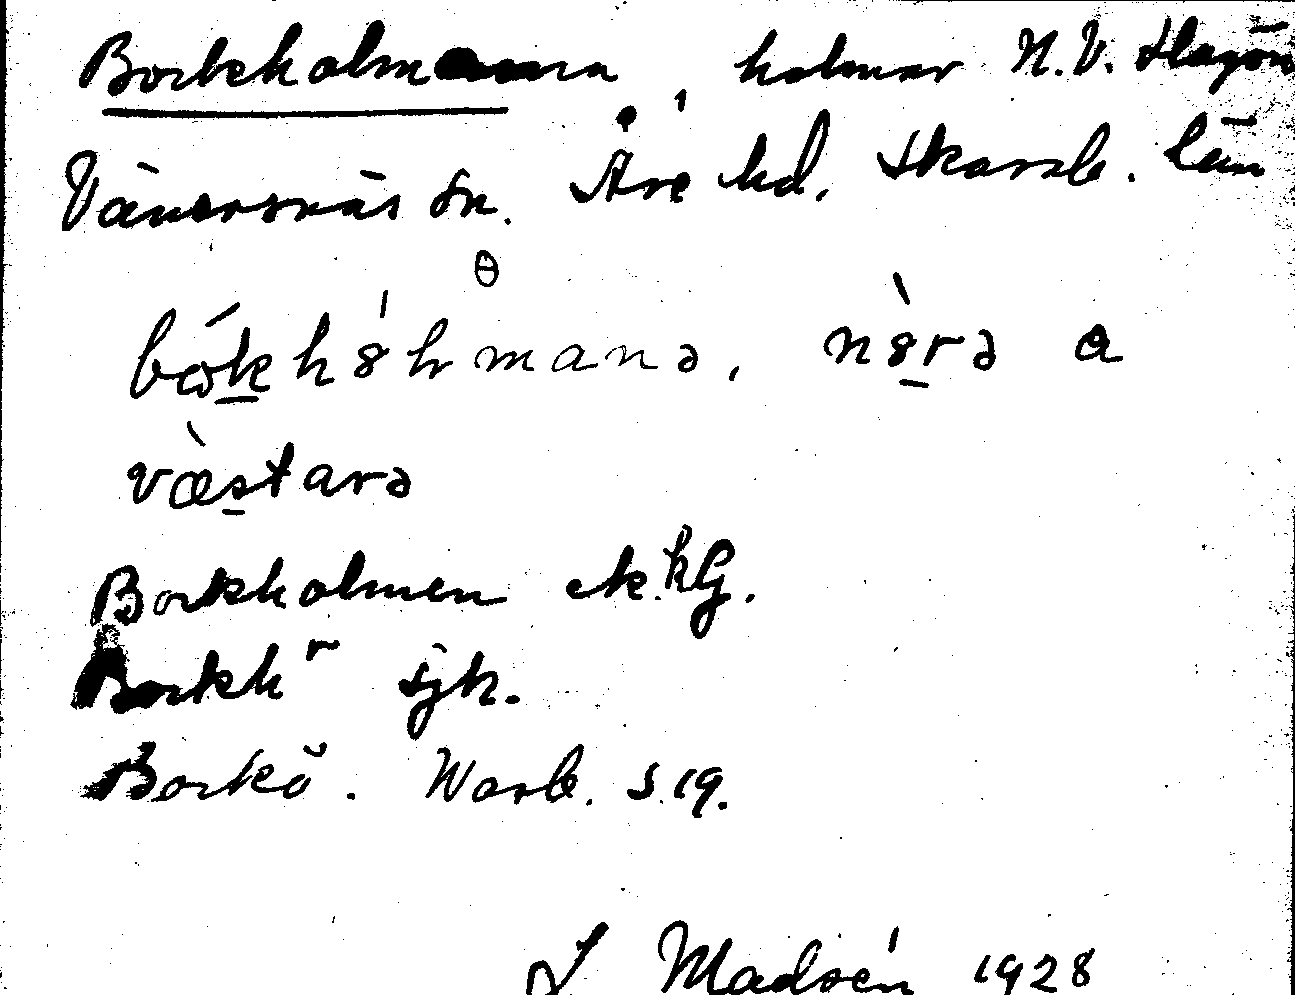 Borkholmarna, holmar N.V. Hagön
Vänersnäs sn. Åse hd. Skarab. län
bó̤khó̤hmana, nò̤rə a
væ̀stara
Borkholmen ek.kG.
Borkhr sjk.
Borkö. Warb. s 19.
J Madsén 1928